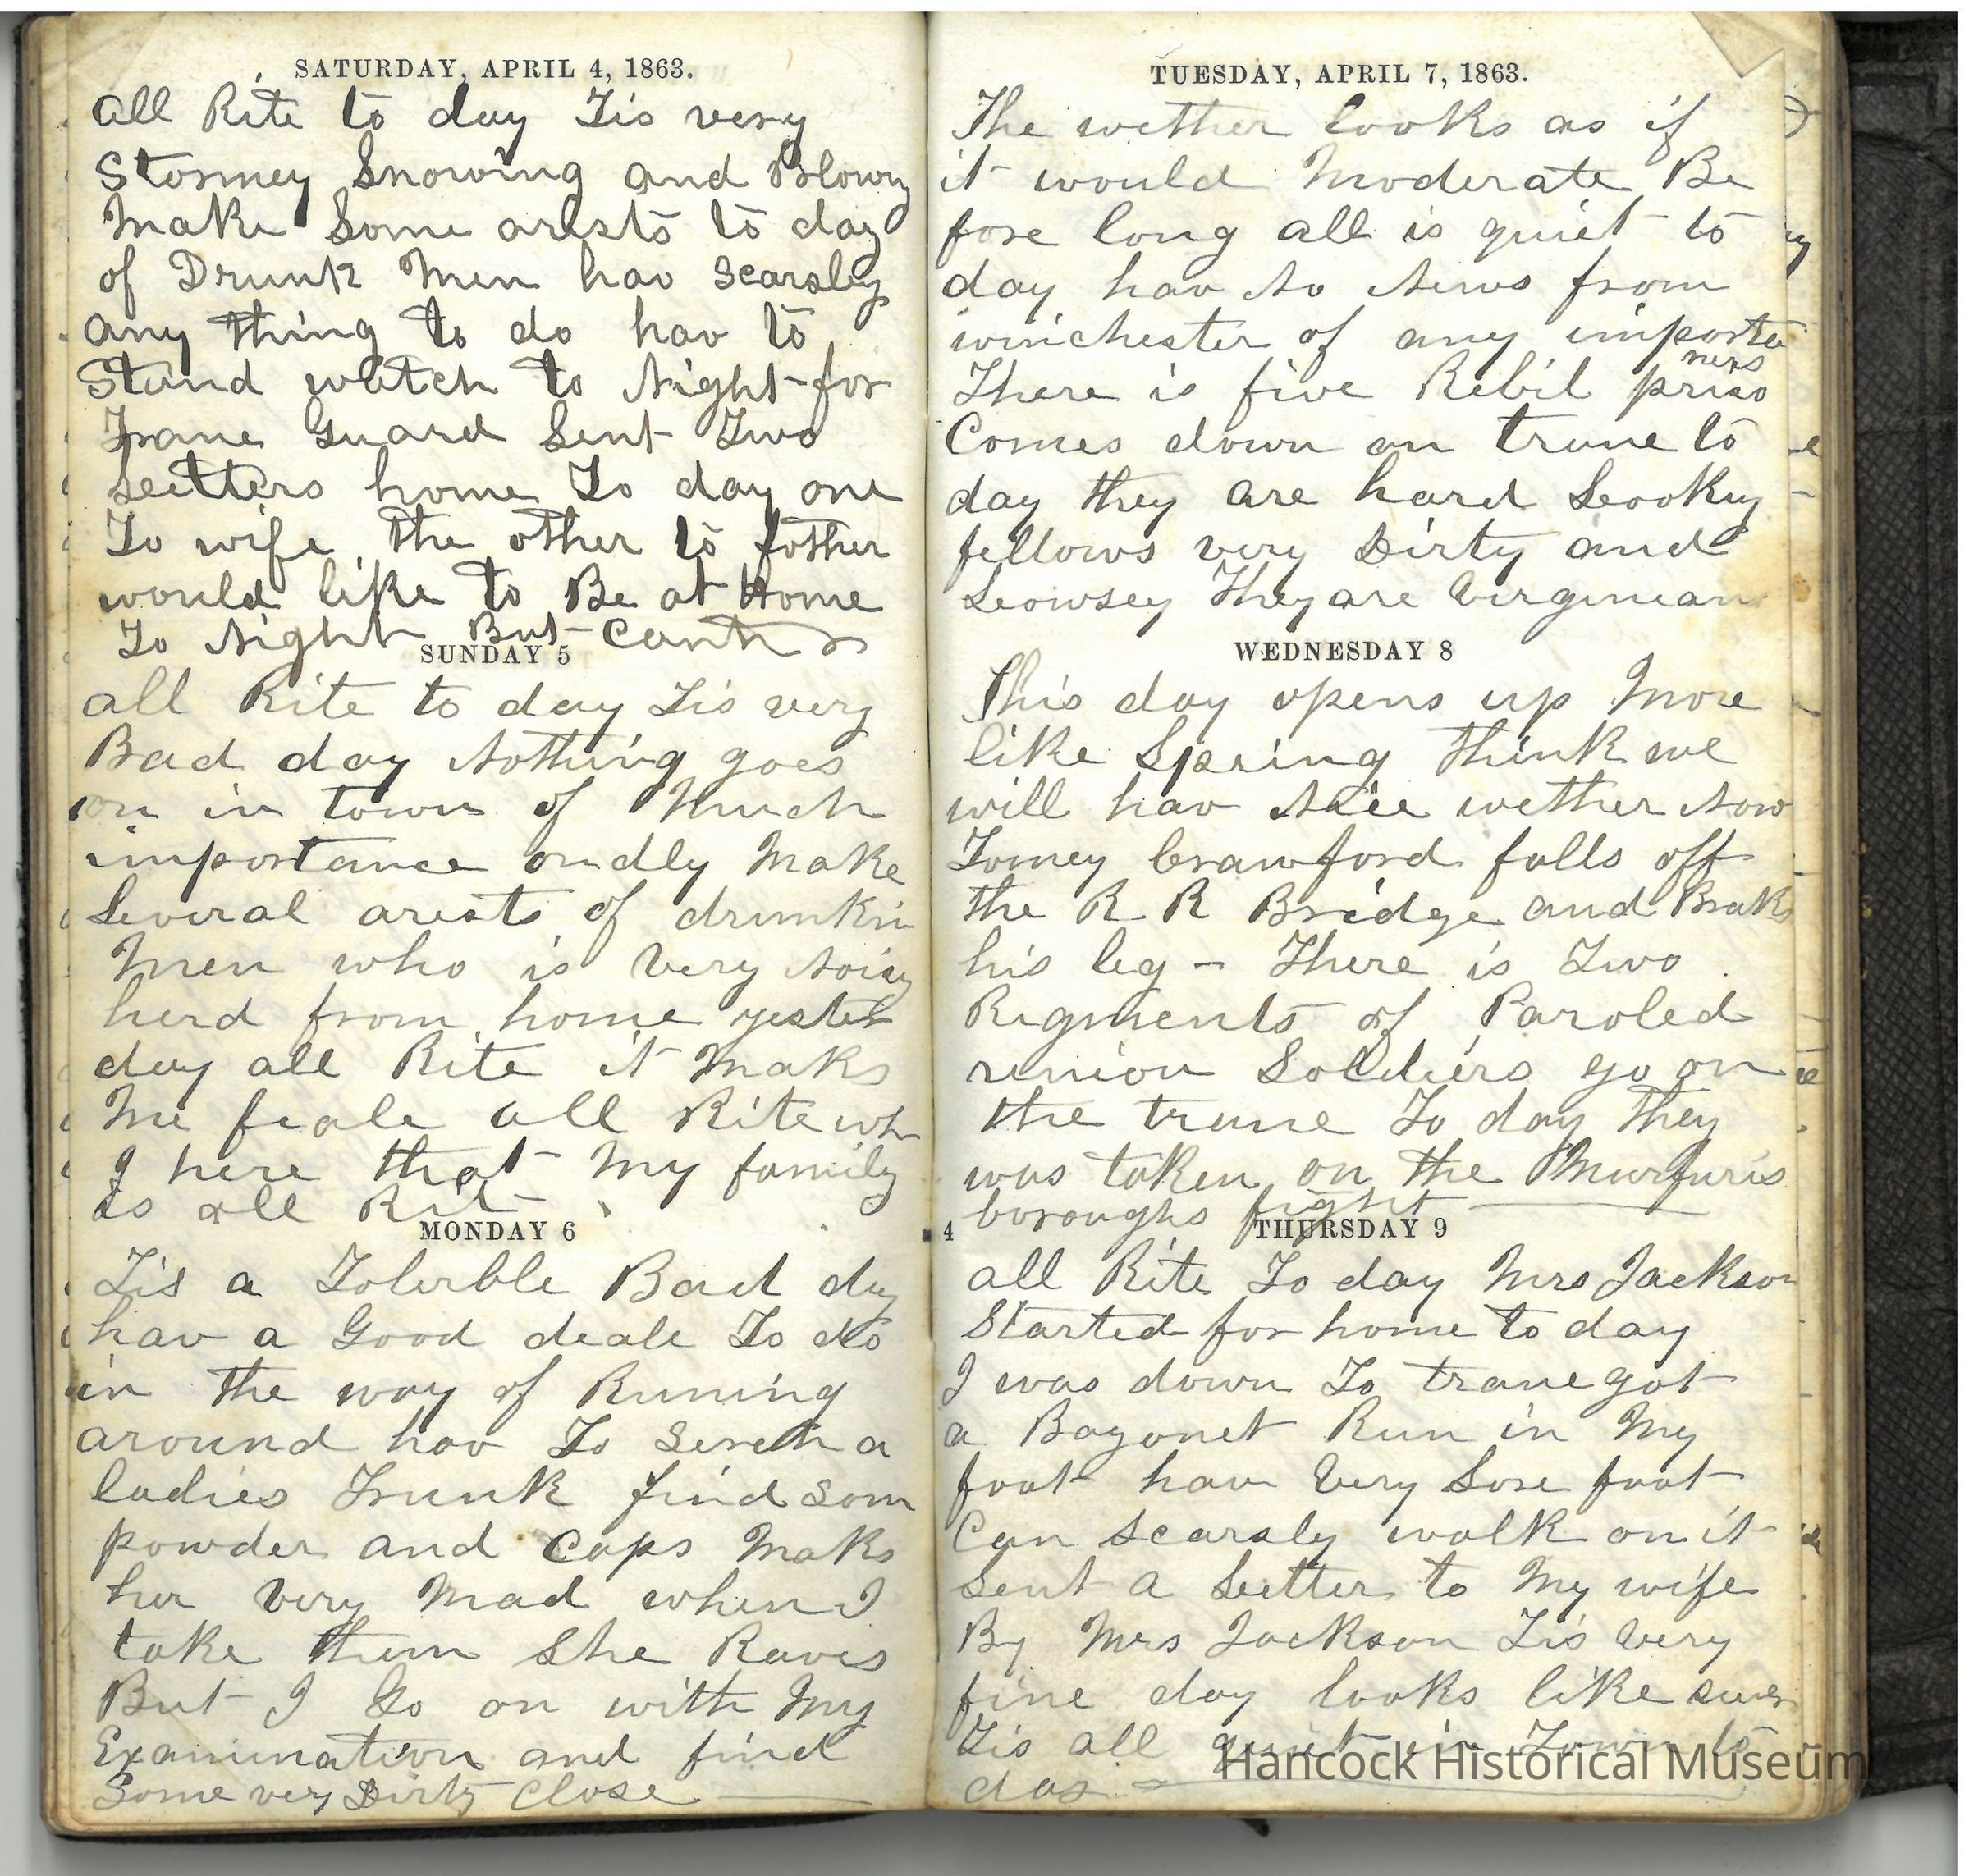 SATURDAY, APRIL 4, 1863.
all Rite to day Tis very
Stormey Snowing and Blowing
Make Some arests to day
of Drunk Men hav Scarsley
any thing to do hav to
Stand watch to Night for
Trane Guard Sent Two
Leetters home To day one
To wife the other to fother
would like to Be at Home
To Night But Cant
SUNDAY 5
all Rite to day Tis very
Bad day Nothing goes
on in town of Much
importance ondly Make
Several arests of drunkin
Men who is very Noisy
herd from home yester
day all Rite it Maks
Me feale all Rite wh
I here that My family
is all Rit
MONDAY 6
Tis a Tolerble Bad day
hav a Good deale To do
in the way of Runing
around hav To Serch a
ladies Trunk find som
powder and Caps Maks
her very Mad when I
take them She Raves
But I Go on with My
Examination and find
Some very Dirty Close
TUESDAY, APRIL 7, 1863.
The wether looks as if
it would Moderate Be
fore long all is quiet to
day hav No News from
winchester of any importa
There is five Rebil prisoners
Comes down on trane to
day they are hard Leooking
fellows very Dirty and
Leowsey They are Virginean
WEDNESDAY 8
This day opens up More
like Spring think we
will hav Nice wether Now
Tomey Crawford falls off
the R R Bridge and Braks
his leg - There is Two
Rigments of Paroled
union Soldiers go on
the trane To day they
was taken on the Murfuris
boroughs fight
4 THURSDAY 9
all Rite To day Mrs Jackson
Started for home to day
I was down To trane got
a Bayonet Run in My
foot hav Very Sore foot
Can scarsly walk on it
Sent a Leetter to My wife
By Mrs Jackson Tis Very
fine day looks like
Tis all quiet in Town to
day
Hancock Historical Museum